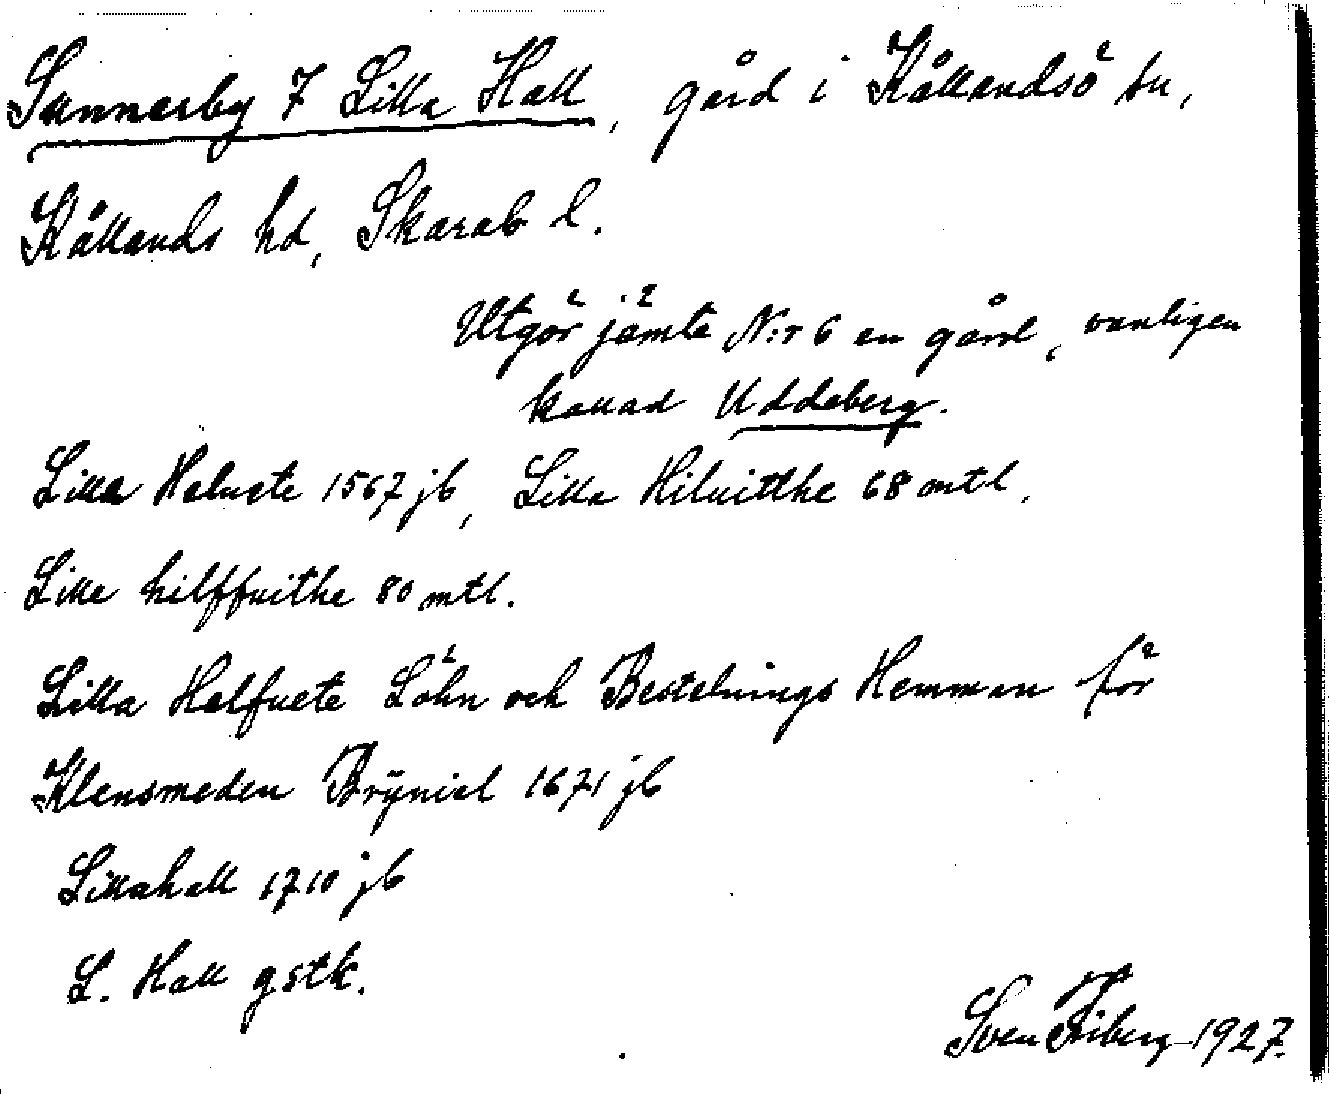 Sunnersby 7 Lilla Hall, gård i Kållandsö sn,
Kållands hd, Skarab l.
Utgör jämte N:r 6 en gård, vanligen
kallad Uddeberg.
Lilla Heluete 1567 jb, Lilla Hiluitthe 68 mtl.
Lille hilffuithe 80 mtl.
Lilla Helfuete Löhn och Bestelnings Hemman för
Klensmeden Brÿniel 1671 jb
Lillahall 1710 jb
L. Hall gstk.
Sven Friberg 1927.